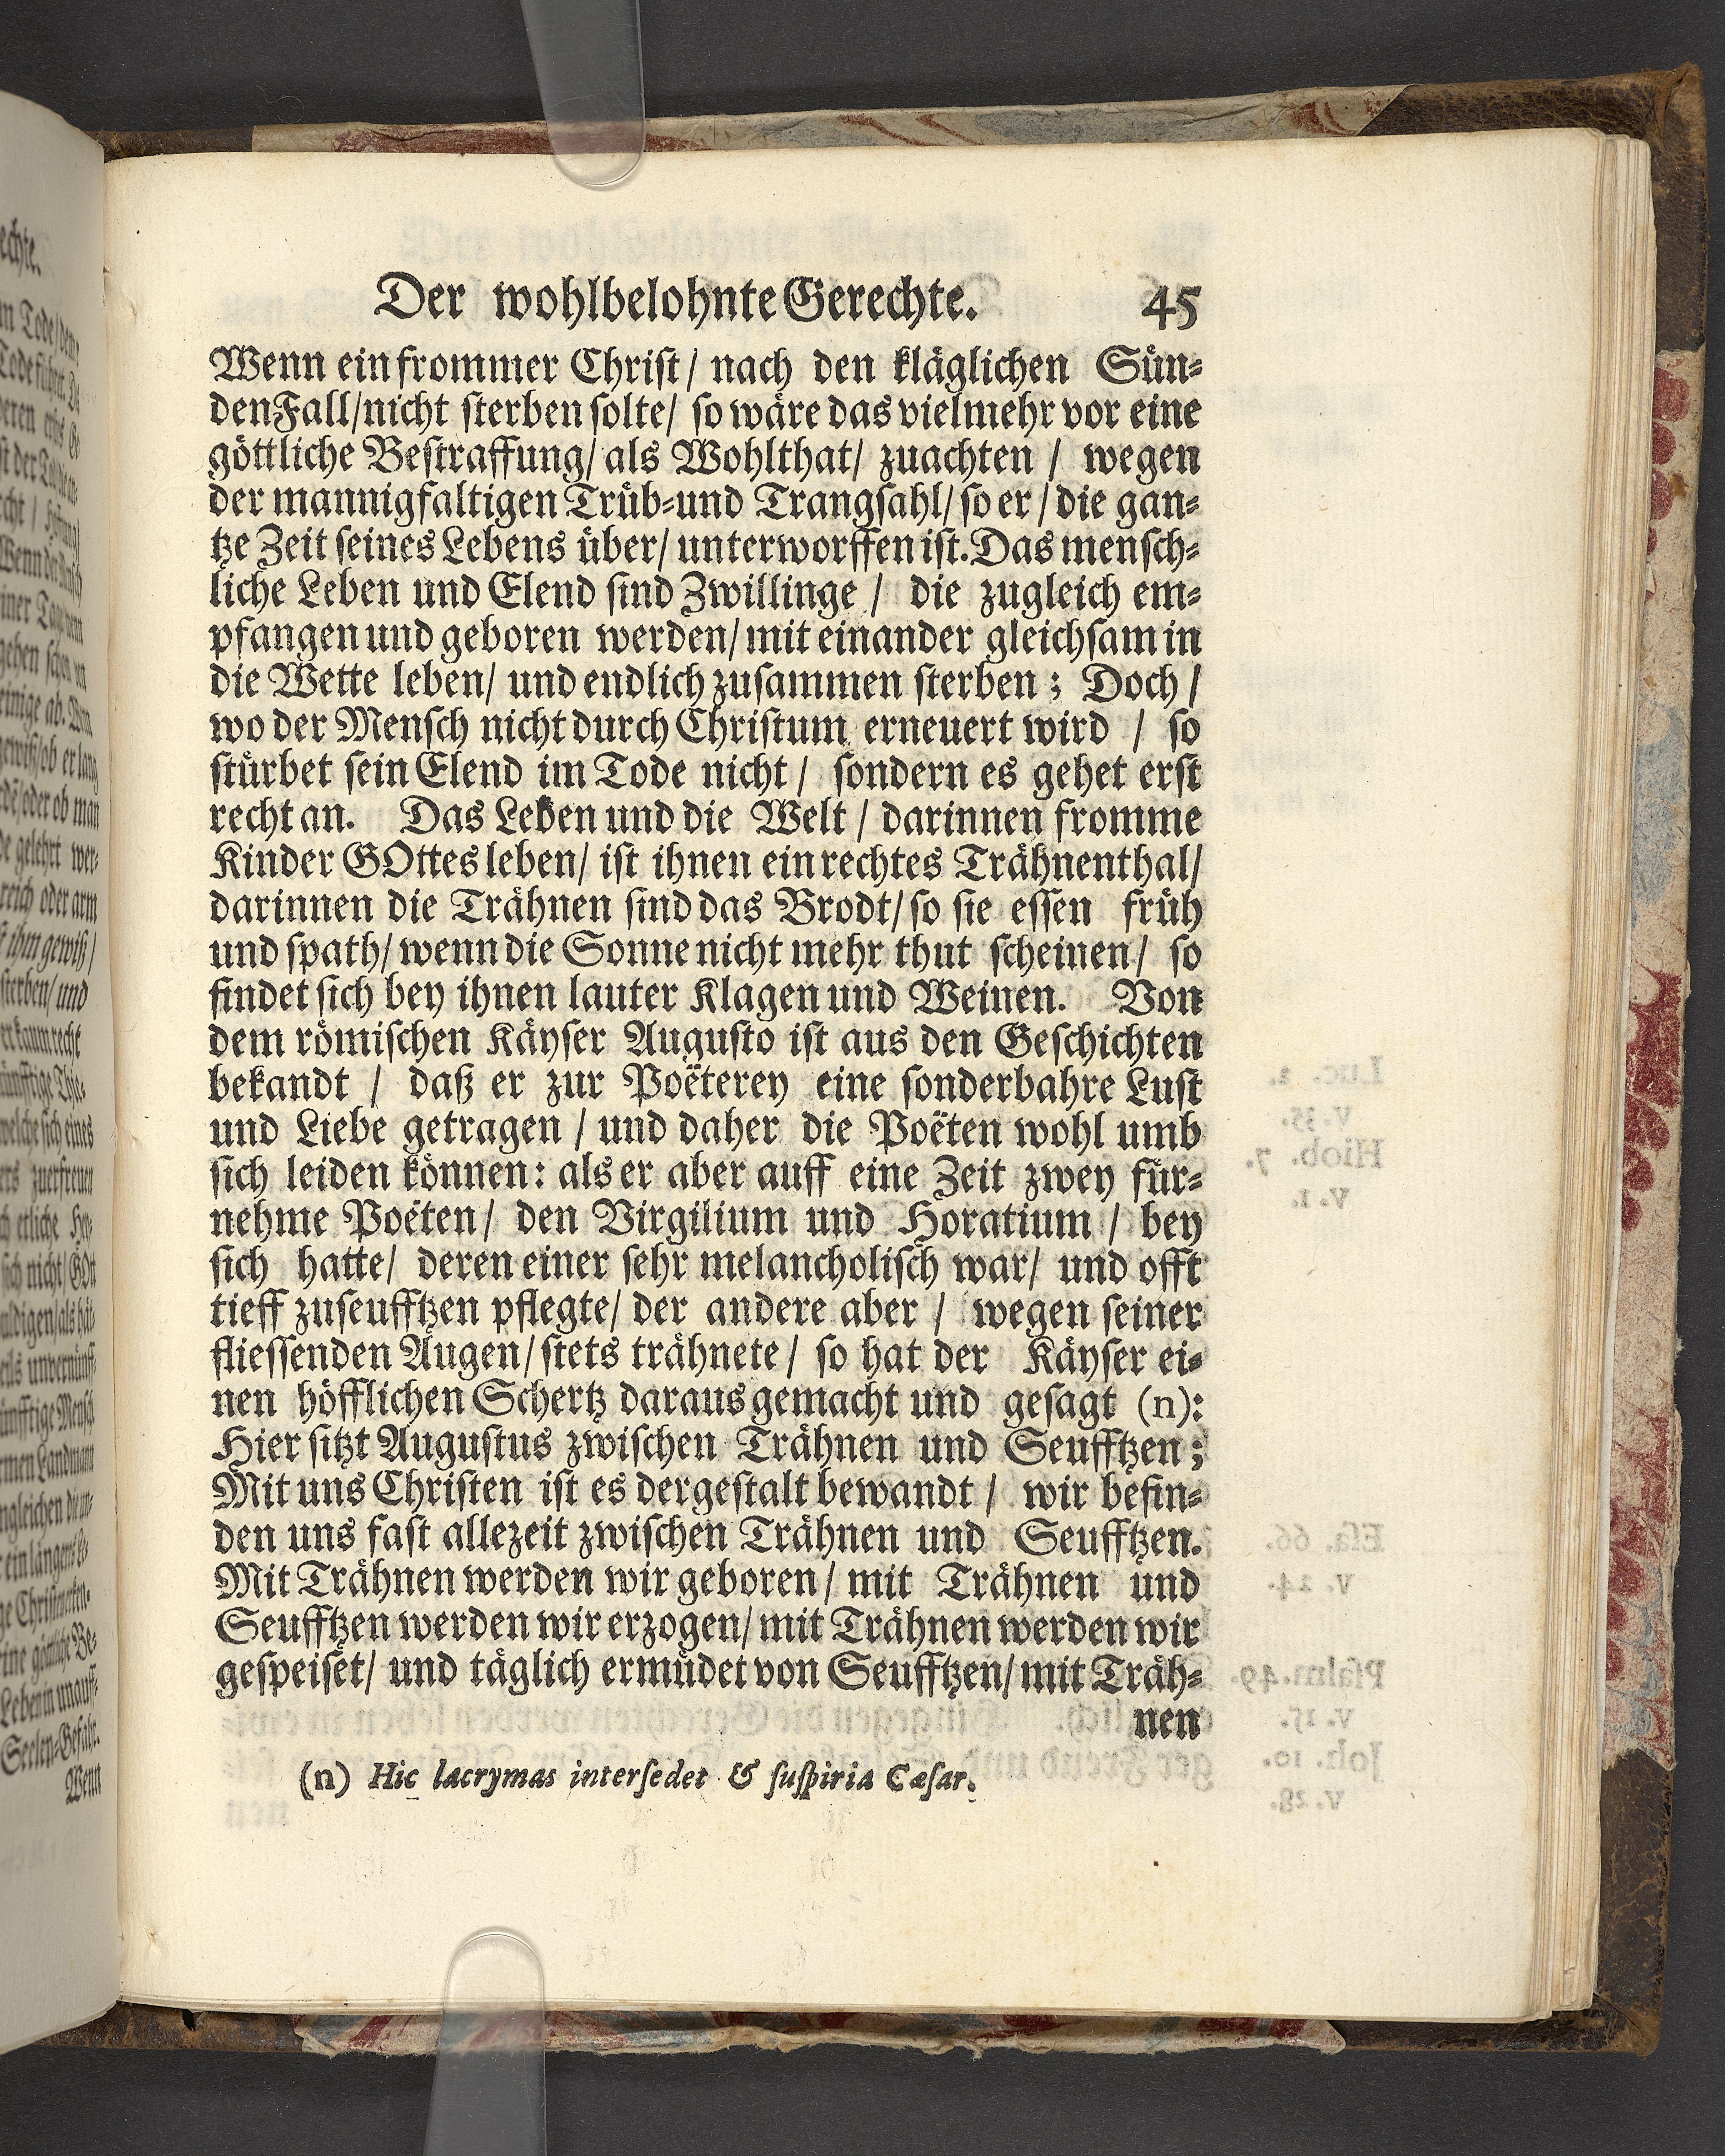 Der wohlbelohnte Gerechte. 45
Wenn ein frommer Chriſt / nach den kläglichen Sün⸗
den Fall / nicht ſterben ſolte / ſo wäre das vielmehr vor eine
göttliche Beſtraffung / als Wohlthat / zuachten / wegen
der mannigfaltigen Trüb⸗und Trangſahl / ſo er / die gan⸗
tze Zeit ſeines Lebens über / unterworffen iſt. Das menſch⸗
liche Leben und Elend ſind Zwillinge / die zugleich em⸗
pfangen und geboren werden / mit einander gleichſam in
die Wette leben / und endlich zuſammen ſterben ; Doch /
wo der Menſch nicht durch Chriſtum erneuert wird / ſo
ſtürbet ſein Elend im Tode nicht / ſondern es gehet erſt
recht an. Das Leben und die Welt / darinnen fromme
Kinder GOttes leben / iſt ihnen ein rechtes Trähnenthal /
darinnen die Trähnen ſind das Brodt / ſo ſie eſſen früh
und ſpath / wenn die Sonne nicht mehr thut ſcheinen / ſo
findet ſich bey ihnen lauter Klagen und Weinen. Von
dem römiſchen Käyſer Auguſto iſt aus den Geſchichten
bekandt / daß er zur Poëterey eine ſonderbahre Luſt
und Liebe getragen / und daher die Poëten wohl umb
ſich leiden können: als er aber auff eine Zeit zwey für⸗
nehme Poëten / den Virgilium und Horatium / bey
ſich hatte / deren einer ſehr melancholiſch war / und offt
tieff zuſeufftzen pflegte / der andere aber / wegen ſeiner
flieſſenden Augen / ſtets trähnete / ſo hat der Käyſer ei⸗
nen höfflichen Schertz daraus gemacht und geſagt (n):
Hier ſitzt Auguſtus zwiſchen Trähnen und Seufftzen ;
Mit uns Chriſten iſt es dergeſtalt bewandt / wir befin⸗
den uns faſt allezeit zwiſchen Trähnen und Seufftzen.
Mit Trähnen werden wir geboren / mit Trähnen und
Seufftzen werden wir erzogen / mit Trähnen werden wir
geſpeiſet / und täglich ermüdet von Seufftzen / mit Träh⸗
nen
(n) Hic lacrymas interſedet & ſuſpiria Cæſar.